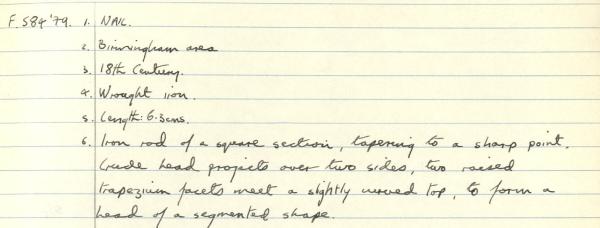 F.584'79. 1. NAIL.
2. Birmingham area
3. 18th Century.
4. Wrought iron.
5. Length: 6.3cms.
6. Iron rod of a square section, tapering to a sharp point.
Crude head projects over two sides, two raised
trapezium facets meet a slightly curved top, to form a
head of a segmented shape.